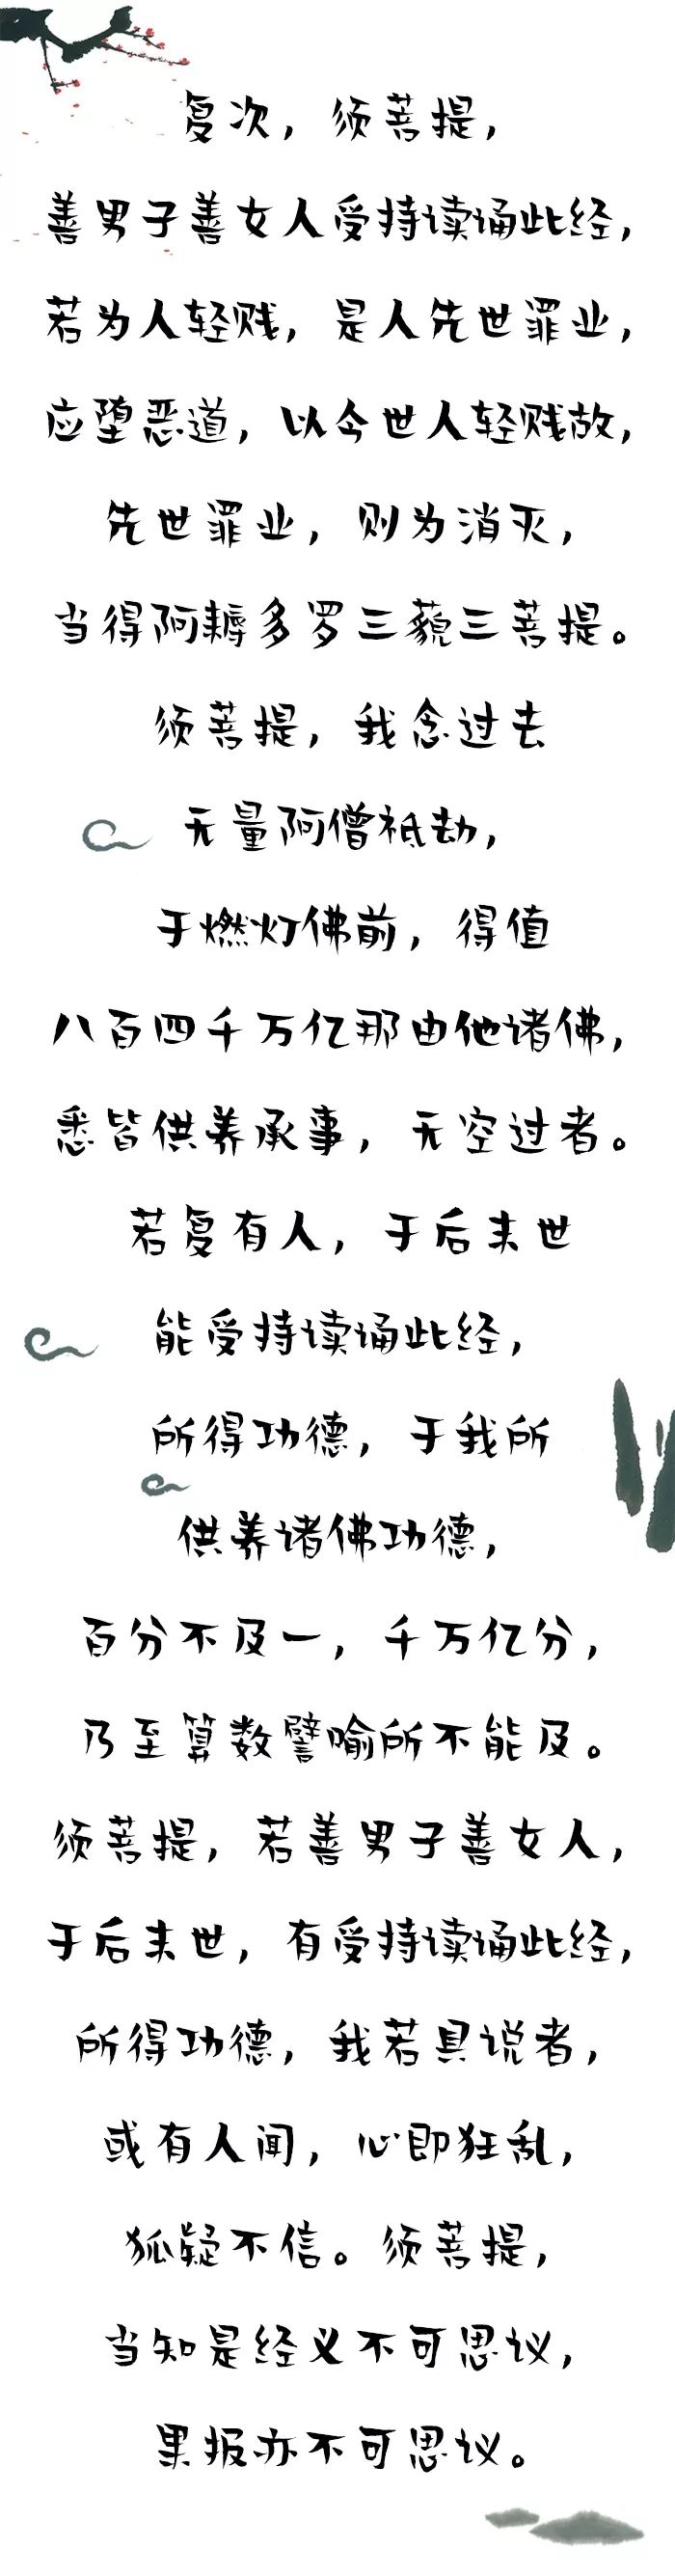 复次，须菩提，
善男子善女人受持读诵此经，
若为人轻贱，是人先世罪业，
应堕恶道，以今世人轻贱故，
先世罪业，则为消灭，
当得阿耨多罗三藐三菩提。
须菩提，我念过去
无量阿僧祇劫，
于燃灯佛前，得值
八百四千万亿那由他诸佛，
悉皆供养承事，无空过者。
若复有人，于后末世
能受持读诵此经，
所得功德，于我所
供养诸佛功德，
百分不及一，千万亿分，
乃至算数譬喻所不能及。
须菩提，若善男子善女人，
于后末世，有受持读诵此经，
所得功德，我若具说者，
或有人闻，心即狂乱，
狐疑不信。须菩提，
当知是经义不可思议，
果报亦不可思议。